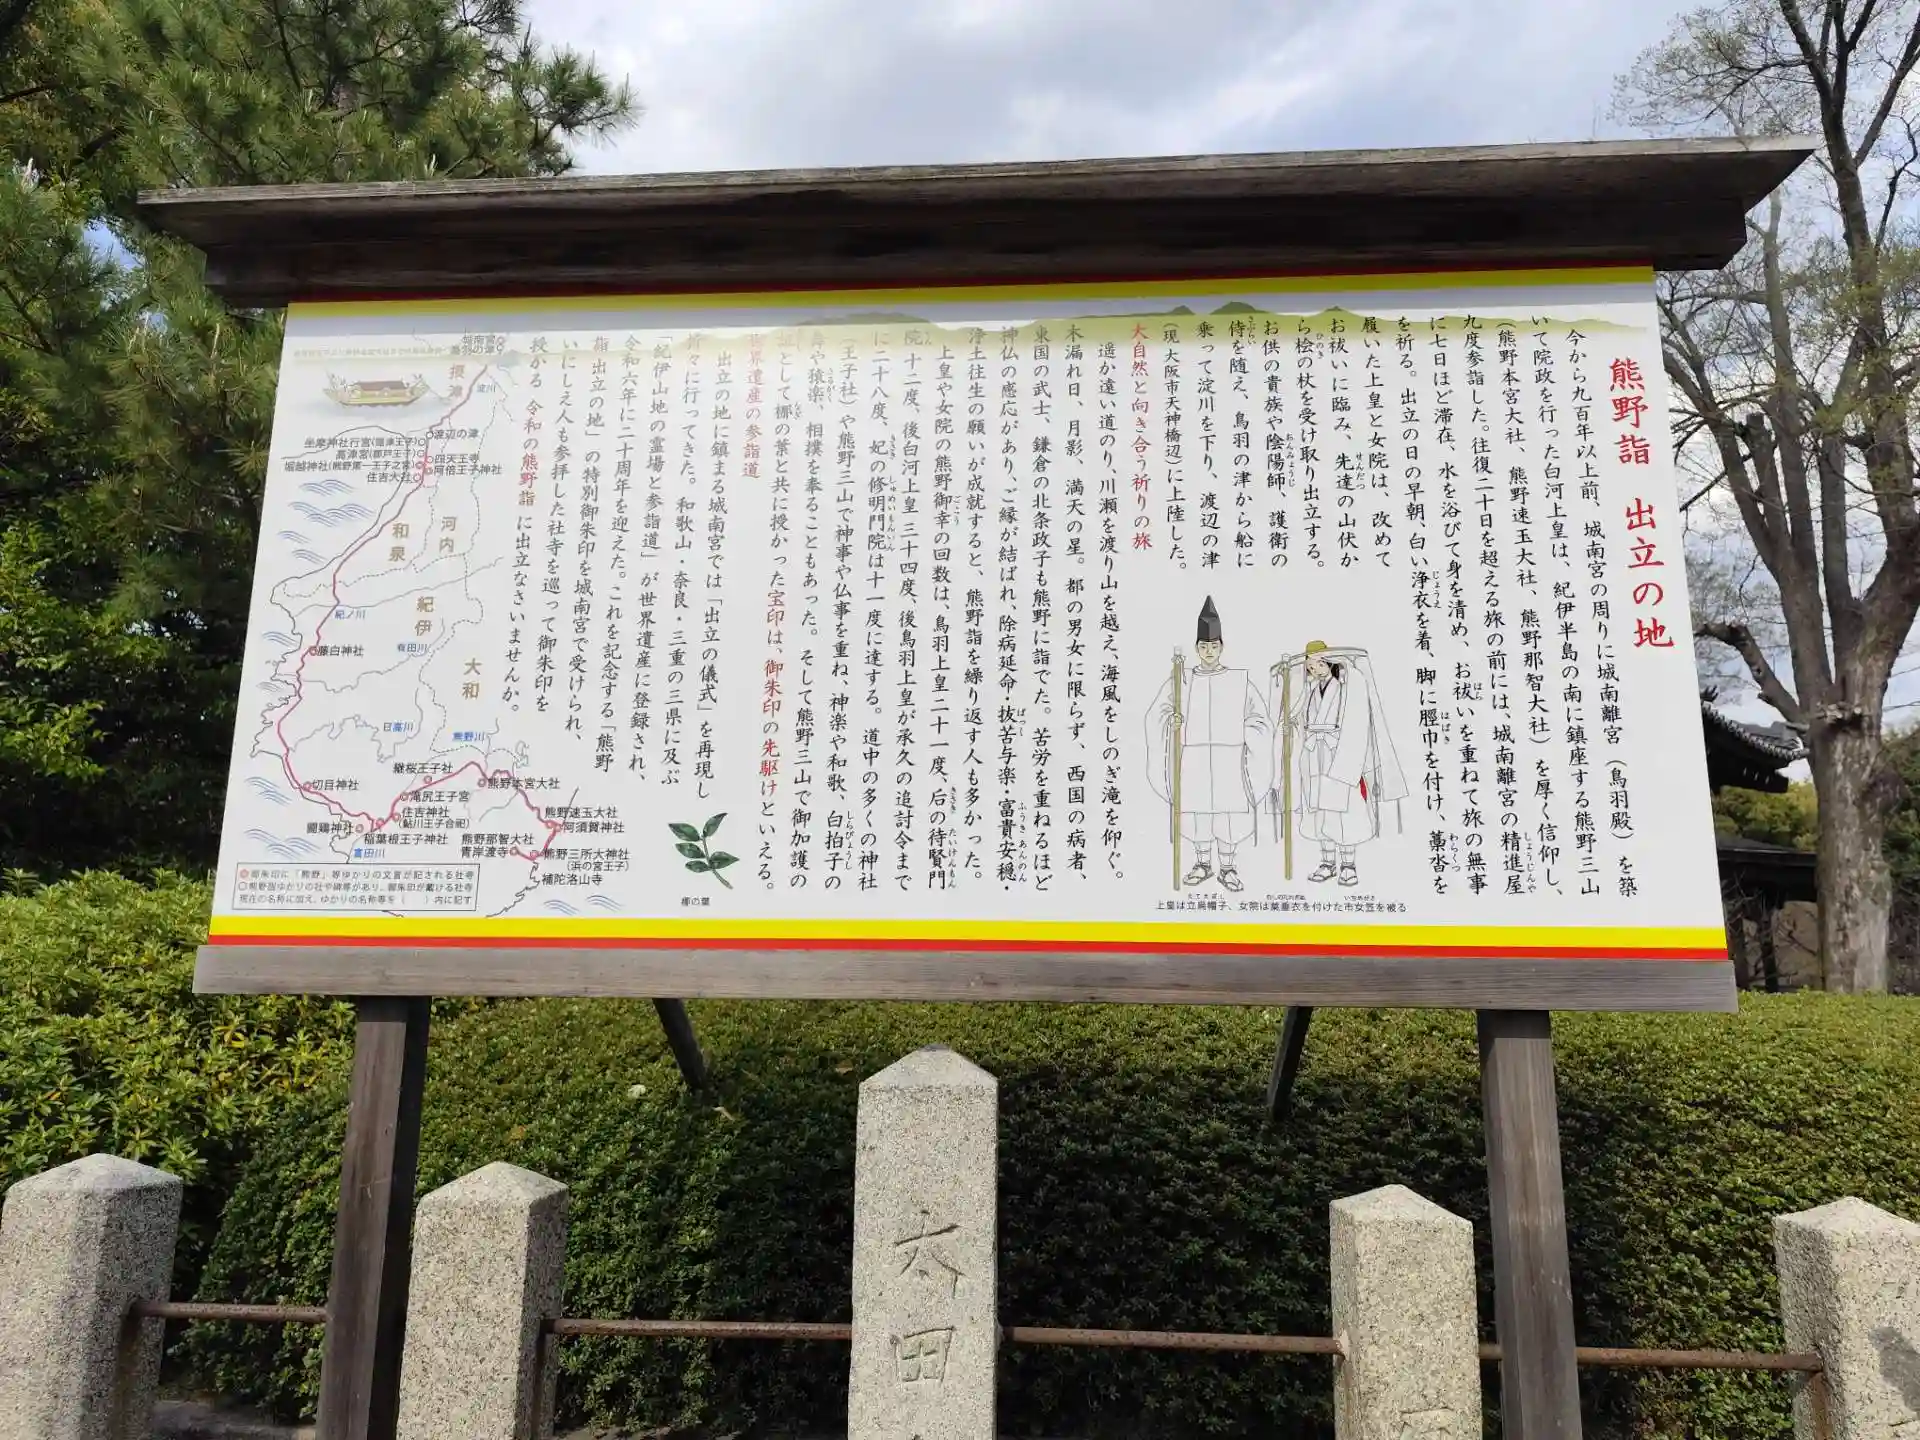 熊野詣 出立の地
今から九百年以上前、城南宮の周りに城南離宮（鳥羽殿）を築
いて院政を行った白河上皇は、紀伊半島の南に鎮座する熊野三山
（熊野本宮大社、熊野速玉大社、熊野那智大社）を厚く信仰し、
九度参詣した。往復二十日を超える旅の前には、城南離宮の精進屋
に七日ほど滞在、水を浴びて身を清め、お祓いを重ねて旅の無事
を祈る。出立の日の早朝、白い浄衣を着、脚に脛巾を付け、藁沓を
履いた上皇と女院は、改めて
お祓いに臨み、先達の山伏か
ら桧の杖を受け取り出立する。
お供の貴族や陰陽師、護衛の
侍を随え、鳥羽の津から船に
乗って淀川を下り、渡辺の津
（現大阪市天神橋辺）に上陸した。
大自然と向き合う祈りの旅
遥か遠い道のり、川瀬を渡り山を越え、海風をしのぎ滝を仰ぐ。
木漏れ日、月影、満天の星。都の男女に限らず、西国の病者、
東国の武士、鎌倉の北条政子も熊野に詣でた。苦労を重ねるほど
神仏の感応があり、ご縁が結ばれ、除病延命・抜苦与楽・富貴安穏・
浄土往生の願いが成就すると、熊野詣を繰り返す人も多かった。
上皇や女院の熊野御幸の回数は、鳥羽上皇二十一度、后の待賢門
院十二度、後白河上皇三十四度、後鳥羽上皇が承久の追討令まで
に二十八度、妃の修明門院は十一度に達する。道中の多くの神社
（王子社）や熊野三山で神事や仏事を重ね、神楽や和歌、白拍子の
舞や猿楽、相撲を奉ることもあった。そして熊野三山で御加護の
証として梛の葉と共に授かった宝印は、御朱印の先駆けといえる。
世界遺産の参詣道
出立の地に鎮まる城南宮では「出立の儀式」を再現し
折々に行ってきた。和歌山・奈良・三重の三県に及ぶ
「紀伊山地の霊場と参詣道」が世界遺産に登録され、
令和六年に二十周年を迎えた。これを記念する「熊野
詣 出立の地」の特別御朱印を城南宮で受けられ、
いにしえ人も参拝した社寺を巡って御朱印を
授かる 令和の熊野詣 に出立なさいませんか。
上皇は立烏帽子、女院は葉垂衣を付けた市女笠を被る
梛の葉
城南宮
鳥羽の津
摂津
淀川
渡辺の津
坐摩神社行宮(窪津王子)
高津宮(郡戸王子)
四天王寺
堀越神社(熊野第一王子之宮)
阿倍王子神社
住吉大社
和泉
河内
紀ノ川
紀伊
藤白神社
有田川
大和
日高川
熊野川
継桜王子社
熊野本宮大社
切目神社
滝尻王子宮
熊野速玉大社
住吉神社
(鮎川王子合祀)
阿須賀神社
闘鶏神社
稲葉根王子神社
熊野那智大社
富田川
青岸渡寺
熊野三所大神社
(浜の宮王子)
補陀洛山寺
御朱印に「熊野」等ゆかりの文言が記される社寺
熊野詣ゆかりの社や縁等があり、御朱印が戴ける社寺
現在の名称に加え、ゆかりの名称等を（ ）内に記す
太田